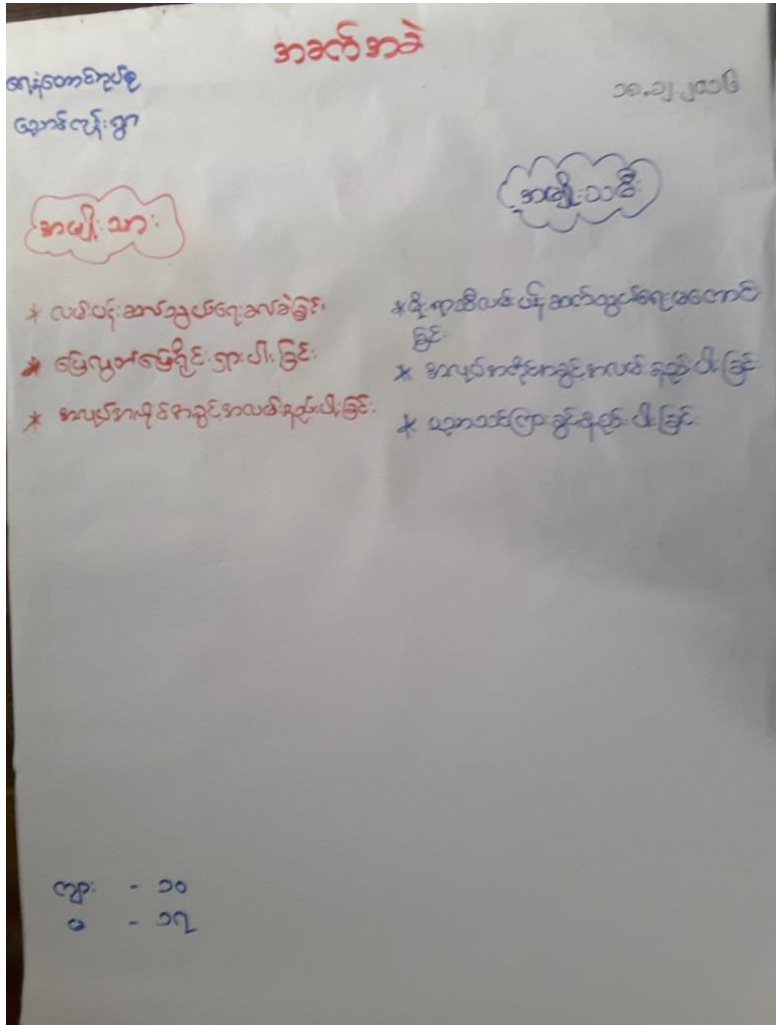 အခက်အခဲ
ရေနံတောင်အုပ်စု
ညောင်ကုန်းရွာ
၁၈.၁၂.၂၀၁၆
အမျိုးသား
အမျိုးသမီး
* လမ်းပန်းဆက်သွယ်ရေးခက်ခဲခြင်း
* မြေလွတ်မြေရိုင်းရှားပါးခြင်း
* အလုပ်အကိုင်အခွင့်အလမ်းနည်းပါးခြင်း
* မိုးရာသီလမ်းပန်းဆက်သွယ်ရေးမကောင်း
ခြင်း
* အလုပ်အကိုင်အခွင့်အလမ်းနည်းပါးခြင်း
* ပညာသင်ကြားခွင့်နည်းပါးခြင်း
ကျား - ၁၀
မ - ၁၇